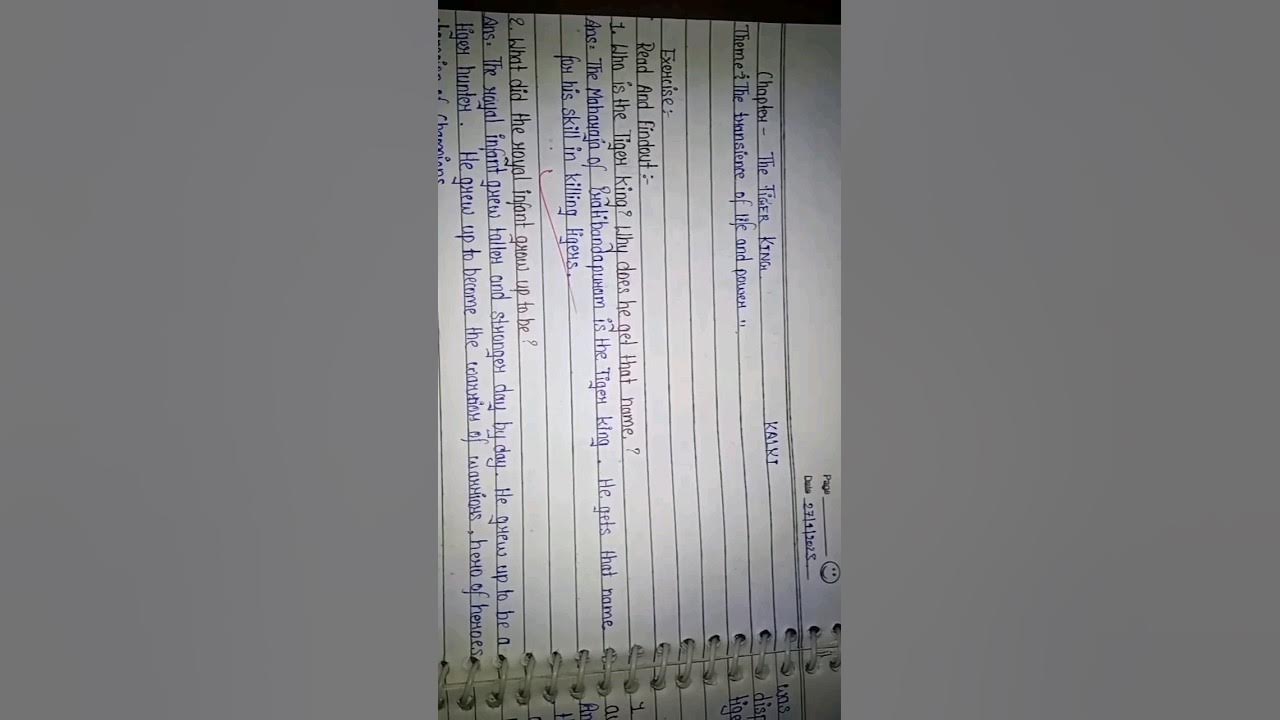 Page
Date 27/1/2025
Chapter - The TIGER KING.
KALKI
Theme:- "The transience of life and power".
Exercise:-
Read And Findout:-
1. Who is the Tiger king? Why does he get that name.?
Ans: The Maharaja of Pratibandapuram is the Tiger king. He gets that name
for his skill in killing tigers.
2. What did the royal infant grow up to be?
Ans: The royal infant grew taller and stronger day by day. He grew up to be a
tiger hunter. He grew up to become the warrior of warriors, hero of heroes
champion of champions
was
disp
tige
1.
au
An